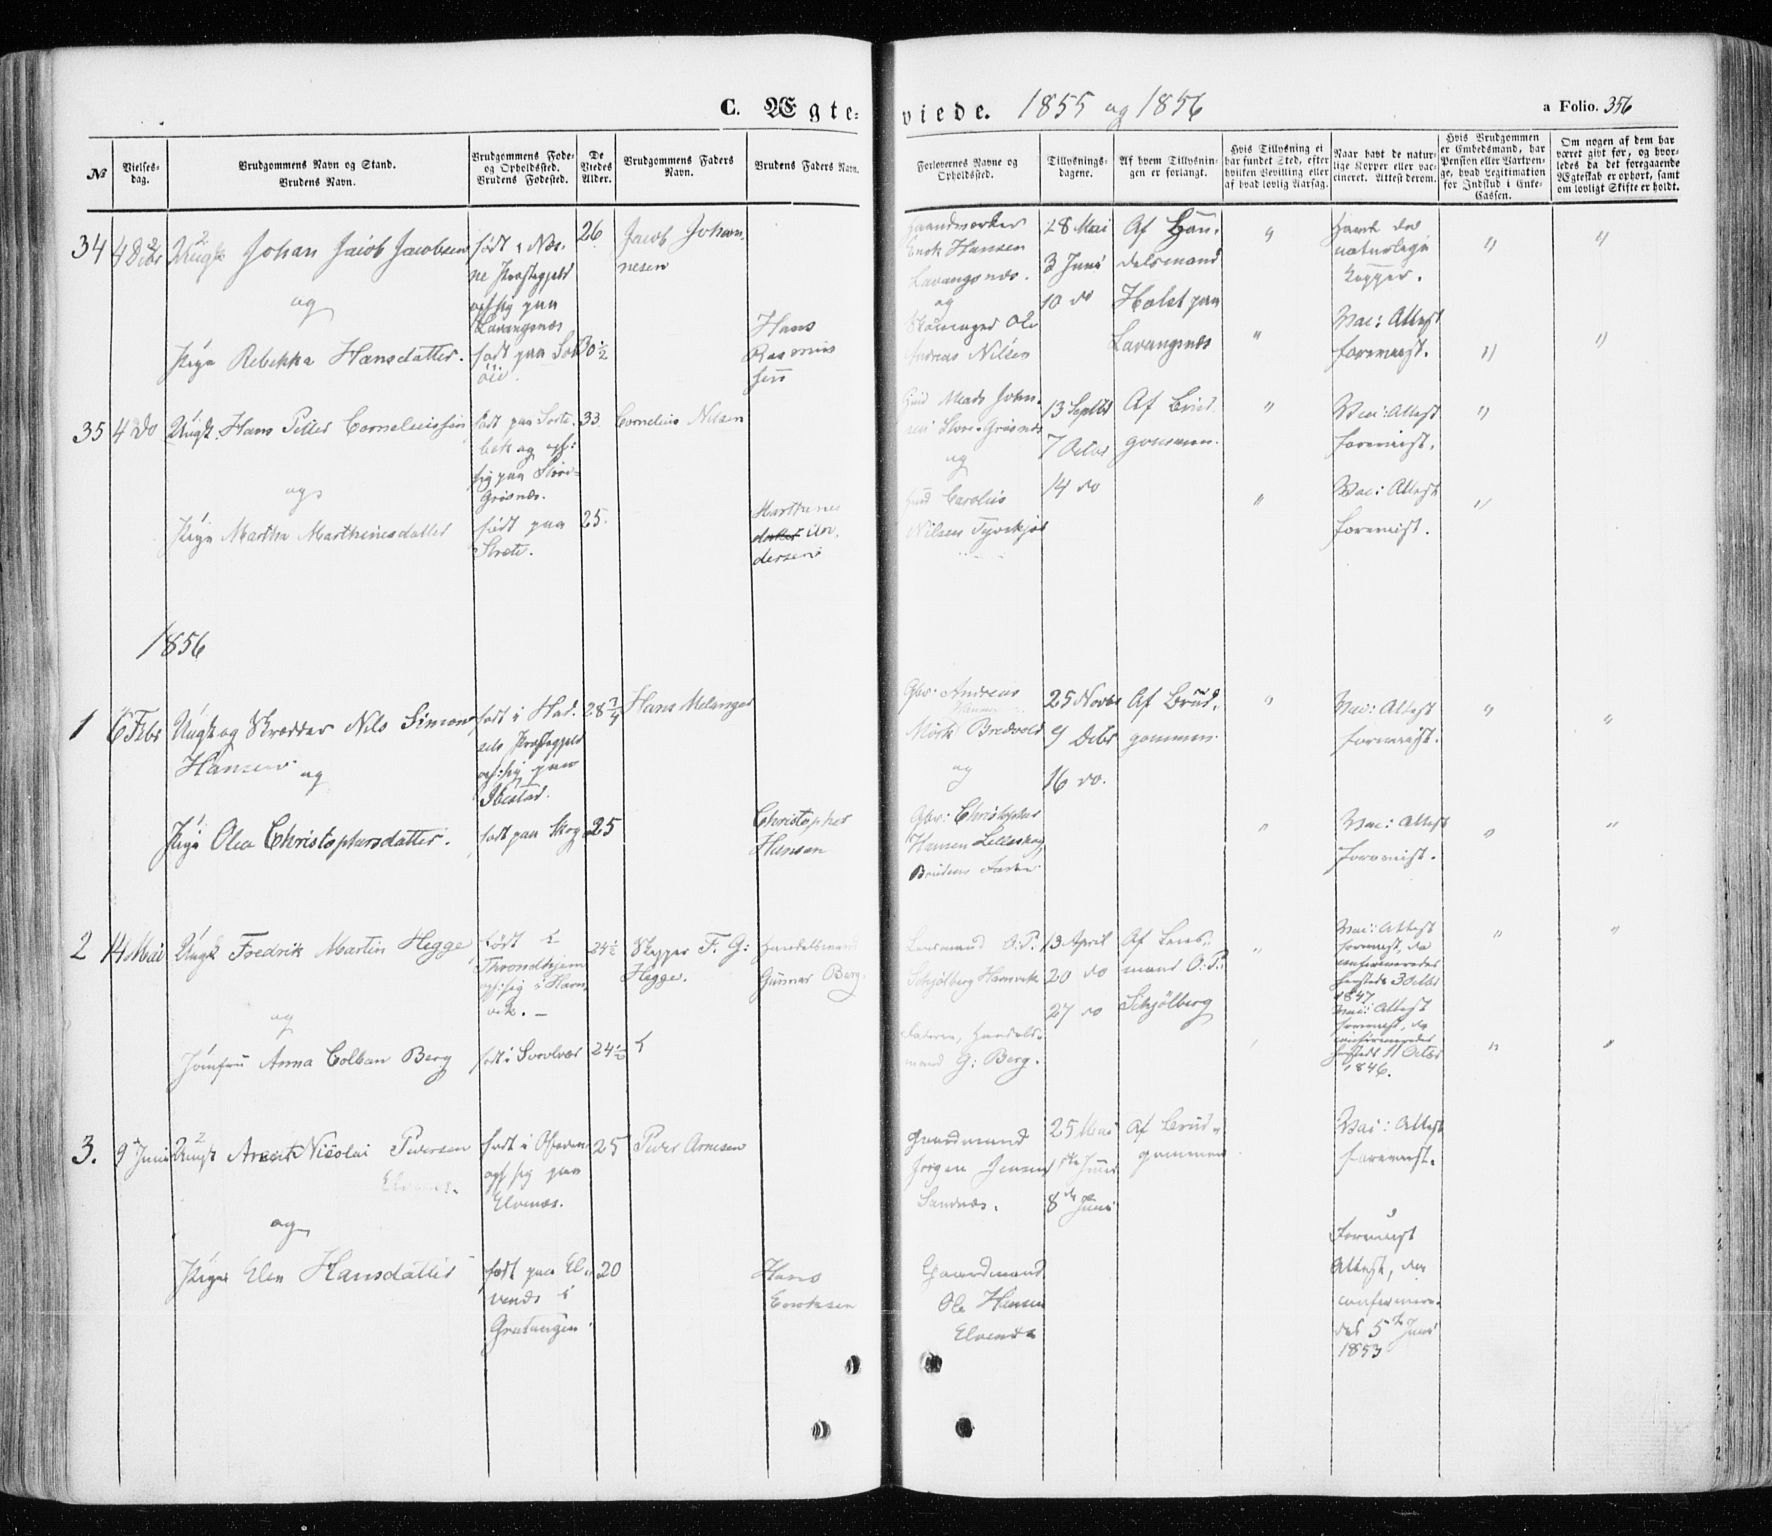 C. Ægte-
viede. 1855 og 1856
a Folio. 356
No
Vielses-
dag.
Brudgommens Navn og Stand.
Brudens Navn.
Brudgommens Føde-
og Opholdssted.
Brudens Fødested.
De
Viedes
Alder.
Brudgommens Faders
Navn.
Brudens Faders Navn.
Forlovernes Navne og
Opholdssted.
Tillysnings-
dagene.
Af hvem Tillysnin-
gen er forlangt.
Hvis Tillysning ei
har fundet Sted, efter
hvilken Bevilling eller
af hvad lovlig Aarsag.
Naar havt de natur-
lige Kopper eller vac-
cineret. Attest derom.
Hvis Brudgommen
er Embedsmand, har
Pension eller Vartpen-
ge, hvad Legitimation
for Indskud i Enke-
Cassen.
Om nogen af dem har
været givt før, og hvor-
ledes da det foregaaende
Ægteskab er ophørt, samt
om lovligt Skifte er holdt.
34
4 Dcbr
Ungk Johan Jacob Jacobsen
og
Pige Rebekka Hansdatter.
født i Næs-
ne Præstegjeld
oph sig paa
Lavangsnæs
født paa
26
30 1/2
Jacob Johan-
nesen
Hans
Rasmus
sen
Haandverker
Enok Hansen
Lavangsnæs.
og
Ole
Andreas Nilsen
28 Mai
3 Juni
10 do
Af Han-
delsmand
Holst paa
Lavangsnæs
"
"
Havt de
naturlige
Kopper.
Vac: Attest
forevist.
"
"
"
"
35
4 do
Ungk. Hans Petter Corneliussen
og
Pige Martha Marthinusdatter
født paa Sorte-
bek og oph:
sig paa Store-
Grøsnæs.
født paa
Stræte.
33
25.
Cornelius Nilsen
Marthines
datter An-
dersen
Mads John-
sen Store-Grøsnæs
og
Carolius
Nilsen
13 Septbr
7 Octbr
14 do
Af Brud-
gommen.
"
"
Vac: Attest
forevist.
Vac: Attest
forevist.
"
"
1856
1
6 Febr
Ungk og Skrædder Nils Simon
Hansen og
Pige Olea Christophersdatter.
født i Had-
sels Præstegjeld
oph: sig paa
Ibestad.
født paa Skog
28 3/4
25
Hans Melanger
Christopher
Hansen
Gbr: Andreas
Hansen
Mørk Bredvold
og
Gbr: Christopher
Hansen Lilleskog
Brudens Fader
25 Novbr
9 Debr
16 do.
Af Brud-
gommen
"
"
Vac: Attest
forevist.
Vac: Attest
forevist.
"
"
"
"
2
14 Mai
Ungk Fredrik Martin Hegge
og
Jomfru Anna Colban Berg
født i
Throndhjem
oph: sig i Havn-
vik. —
født i Svolvær
24 1/2
24 1/2
Skipper F. G:
Hegge.
Handelsmand
Gunnar Berg.
Lensmand O: P:
Schjølberg Hamvik
Faderen, Handels-
mand G: Berg.
13 April
20 do
27 do
Af Lens-
mand O: P:
Schjølberg
"
Vac: Attest
forevist, da
confirmeredes
3 Octbr
1847.
Vac: Attest
forevist, da
confirmeredes
11 Octbr
1846.
"
"
"
"
3.
9 Juni
Ungk Arent Nicolai Pedersen
Elvenes.
og
Pige Elen Hansdatter
født i Ofoden
oph sig paa
Elvenæs.
født paa El-
venæs i
Gratangen
25
20
Peder Arnesen
Hans
Enoksen
Gaardmand
Jørgen Jensen
Sandnæs.
Gaardmand
Ole Hansen
Elvenæs
25 Mai
1ste Juni
8de Juni
Af Brud-
gommen
Vac: Attest
forevist.
Forevist
Attest, da
confirmere-
des 5te Juni
1853